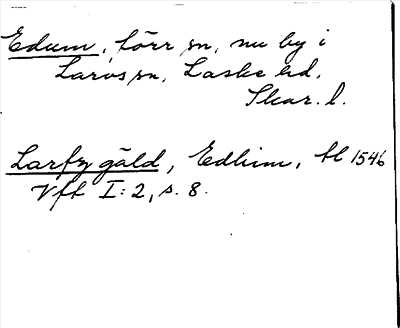 Edum, förr sn, nu by i
Larvs sn, Laske hd,
Skar. l.
Larfz gäld, Edhim, hl 1546
Vfb I:2, s. 8.